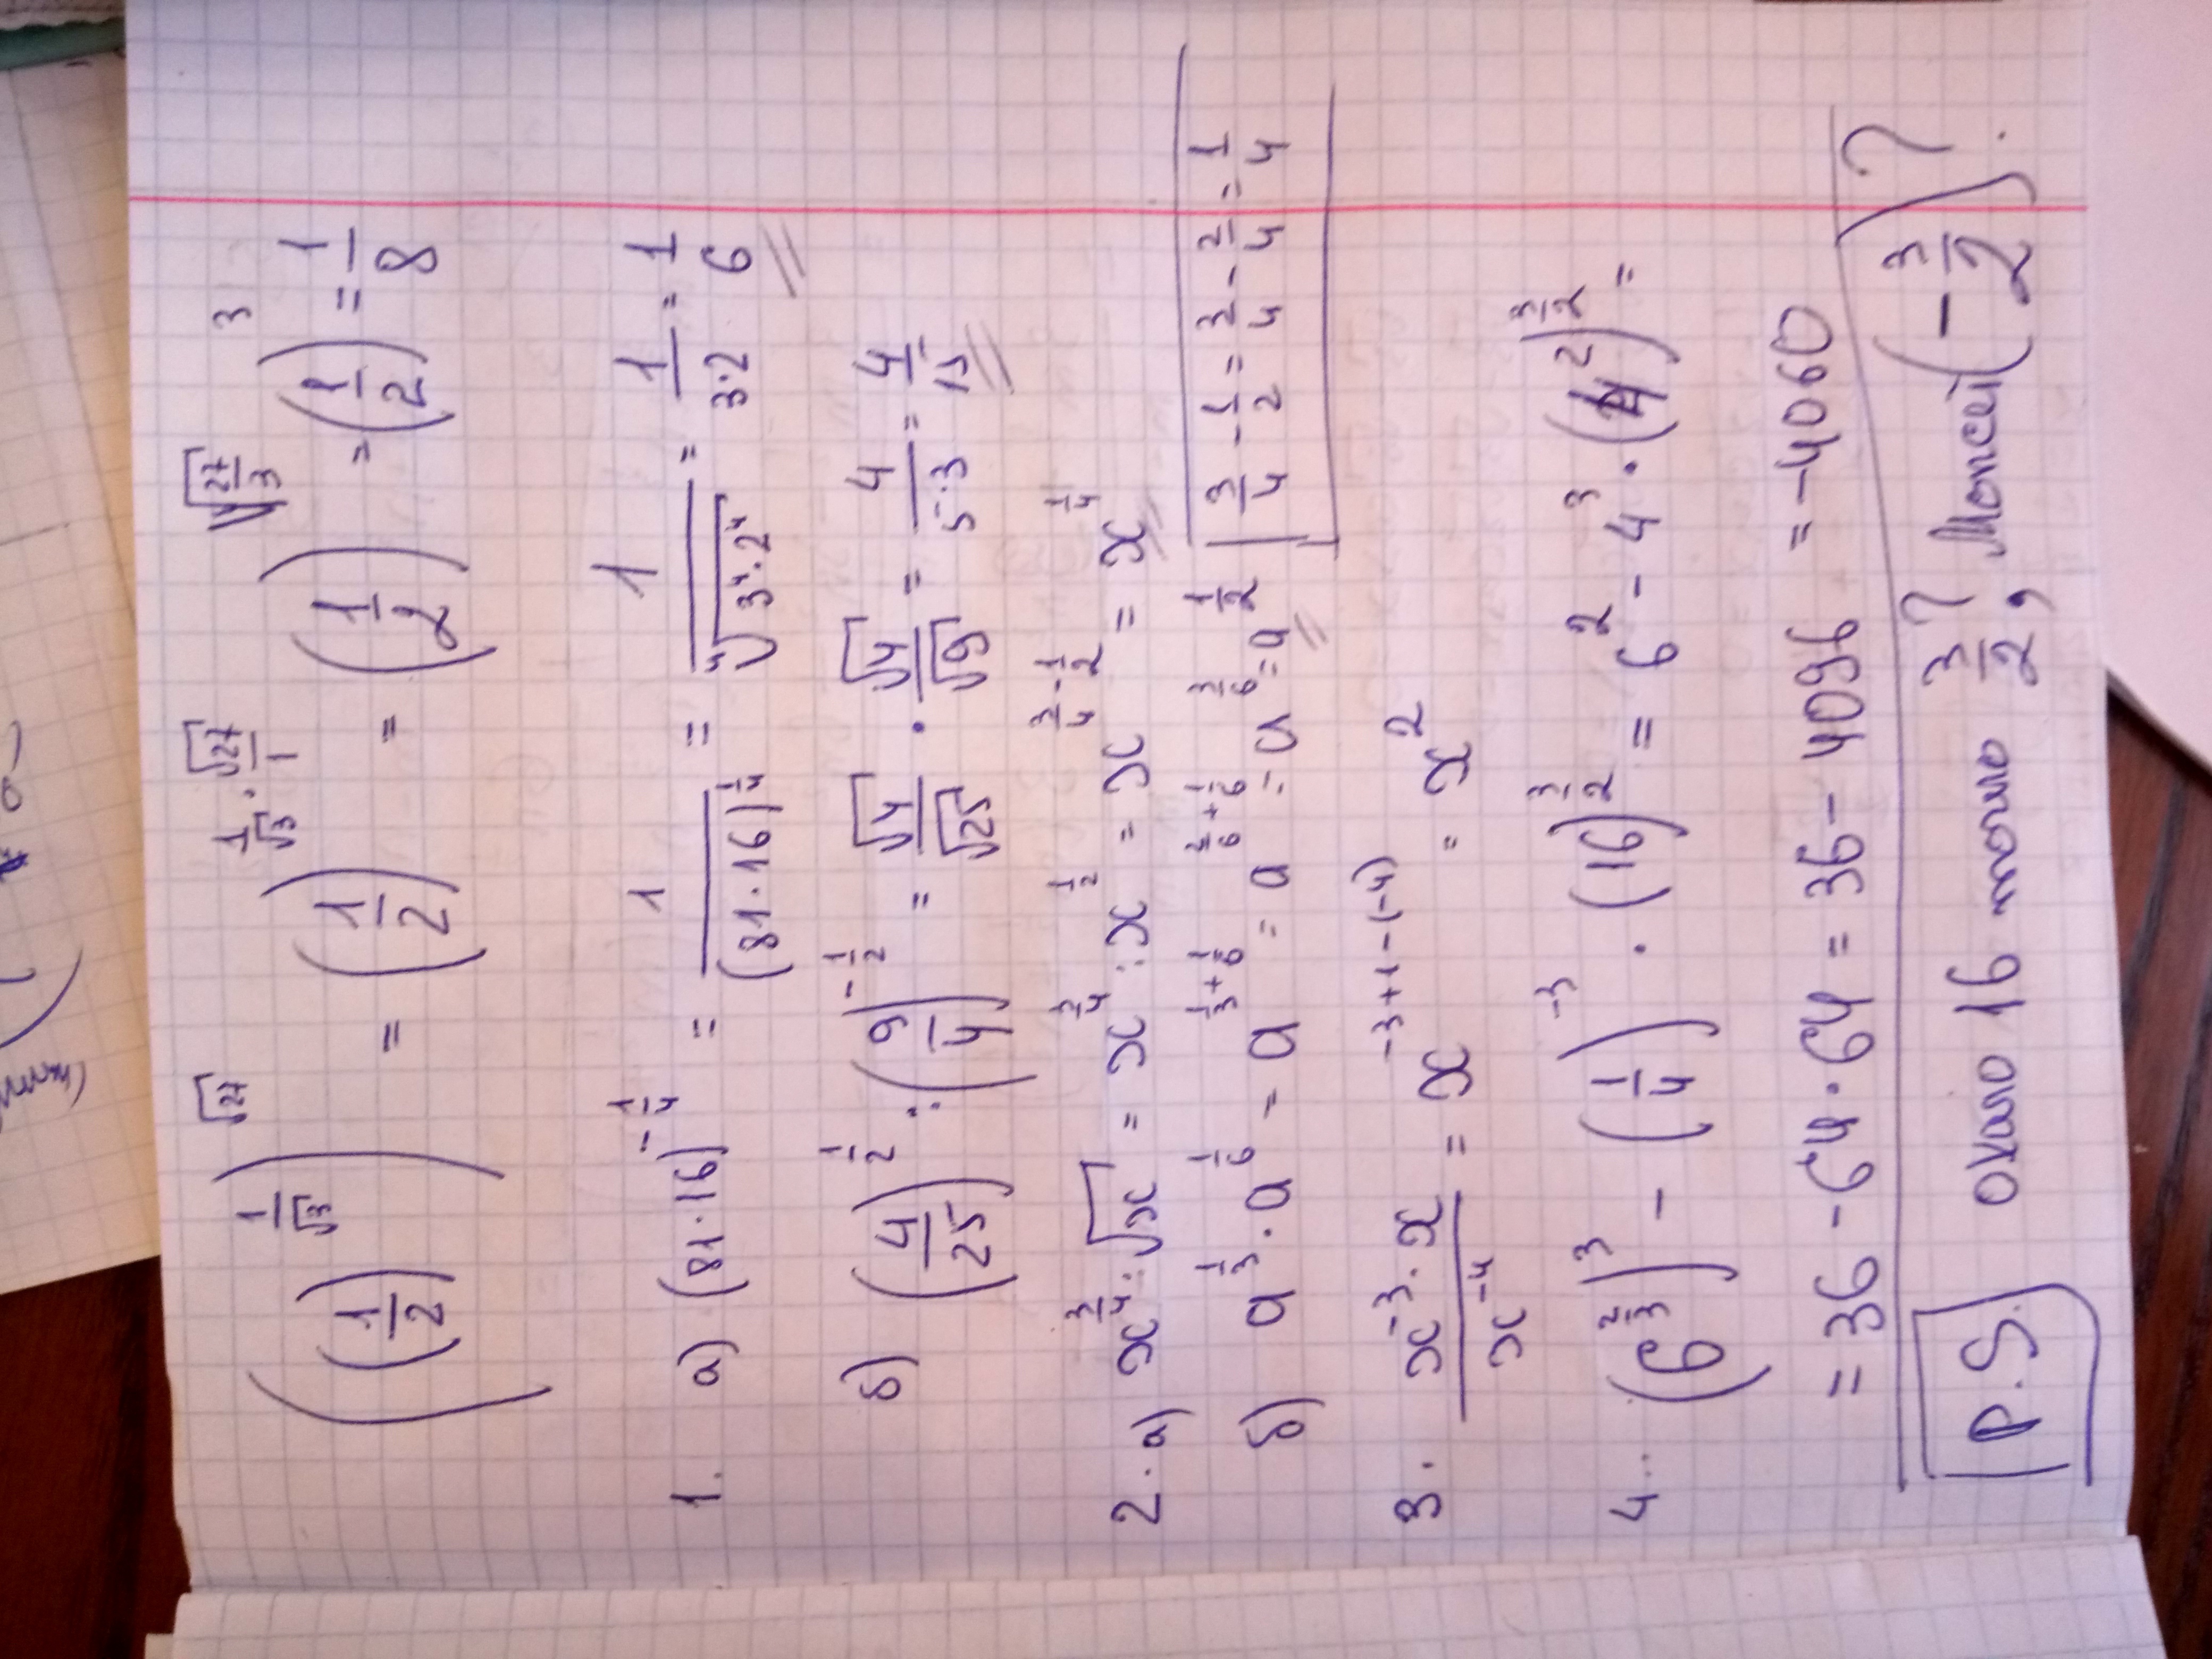 ((1/2)^(1/√3))^√27 = (1/2)^(1/√3 · √27/1) = (1/2)^√(27/3) = (1/2)^3 = 1/8
1. а) (81·16)^(-1/4) = 1/(81·16)^(1/4) = 1/⁴√(3⁴·2⁴) = 1/(3·2) = 1/6
б) (4/25)^(1/2) : (9/4)^(-1/2) = √4/√25 · √4/√9 = 4/(5·3) = 4/15
2. а) x^(3/4) : √x = x^(3/4) : x^(1/2) = x^(3/4 - 1/2) = x^(1/4)
б) a^(1/3) · a^(1/6) = a^(1/3 + 1/6) = a^(2/6 + 1/6) = a^(3/6) = a^(1/2) [3/4 - 1/2 = 3/4 - 2/4 = 1/4
3. (x^-3 · x)/x^-4 = x^(-3+1-(-4)) = x^2
4.. (6^(2/3))^3 - (1/4)^-3 · (16)^(3/2) = 6^2 - 4^3 · (4^2)^(3/2) =
= 36 - 64 · 64 = 36 - 4096 = -4060
P.S. около 16 точно 3/2?, (-3/2)?